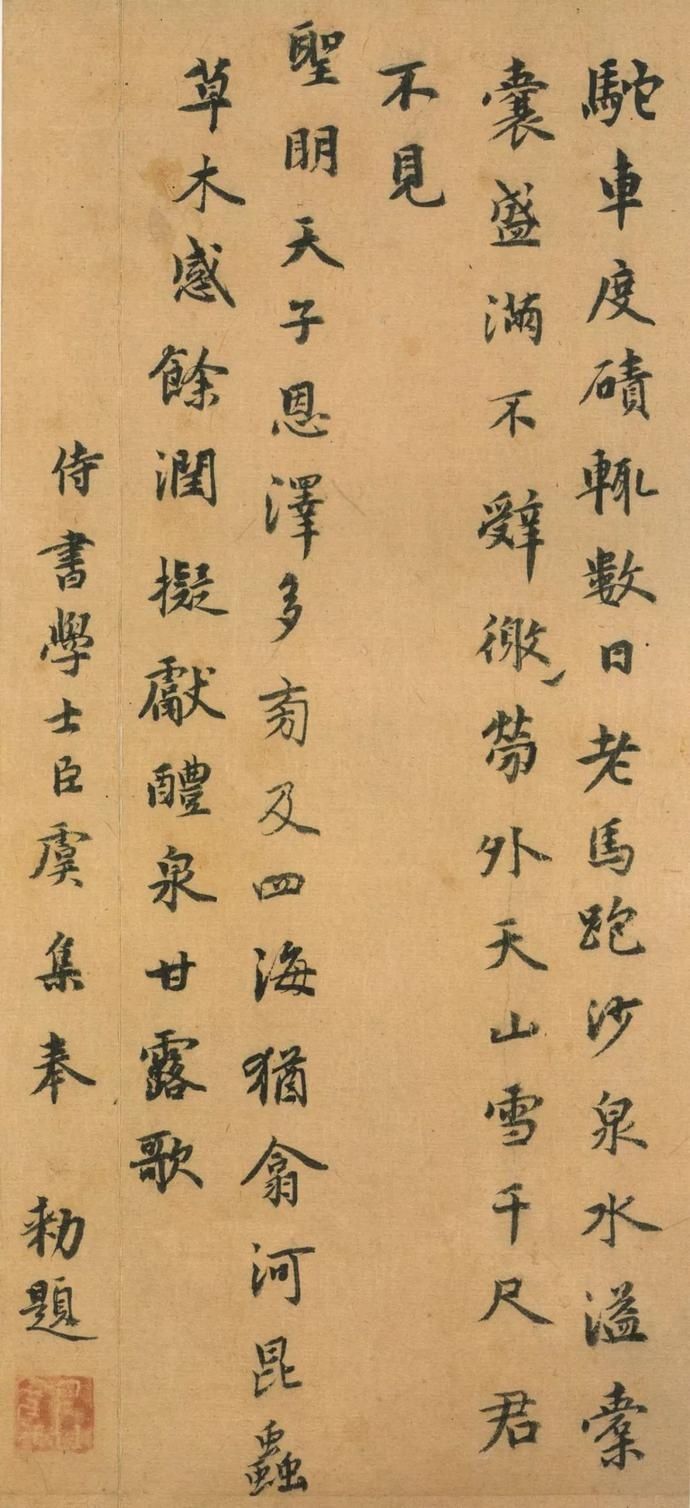 駝車度磧輒數日老馬跑沙泉水溢橐
囊盛滿不辤微勞外天山雪千尺君
不見
聖明天子恩澤多旁及四海猶翕河昆蟲
草木感餘潤擬獻醴泉甘露歌
侍書學士臣虞集奉 勑題